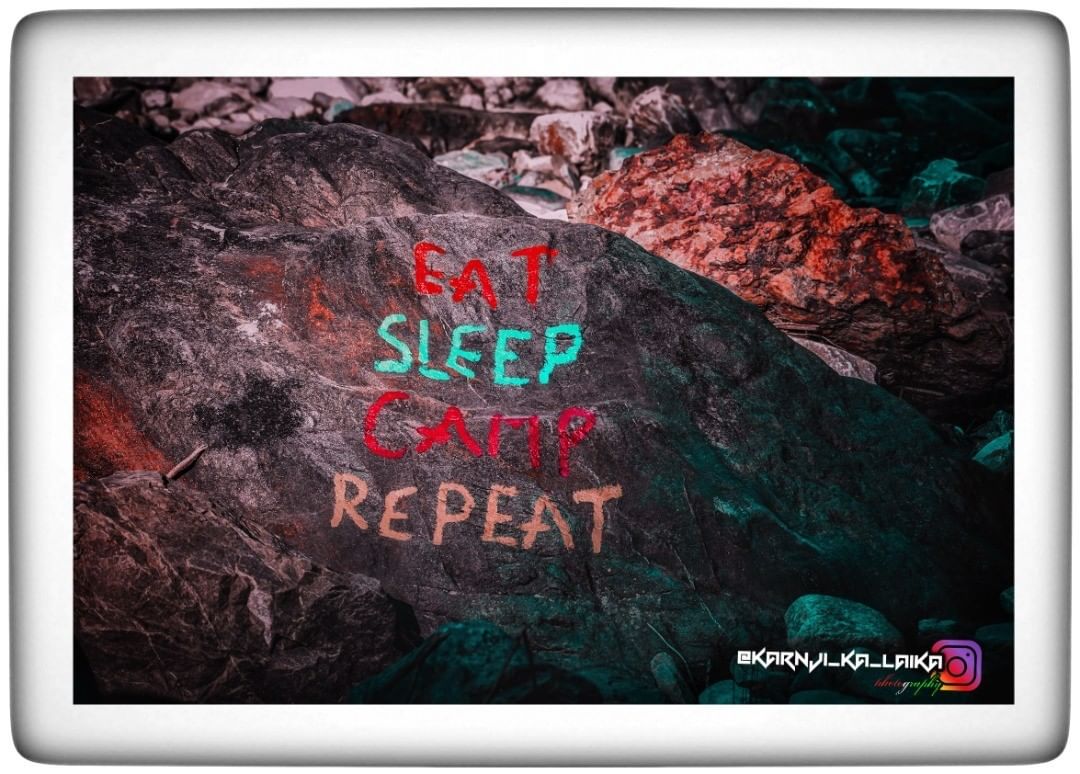 EAT
SLEEP
CAMP
REPEAT
@KARNJI_KA_LAIKA
photography